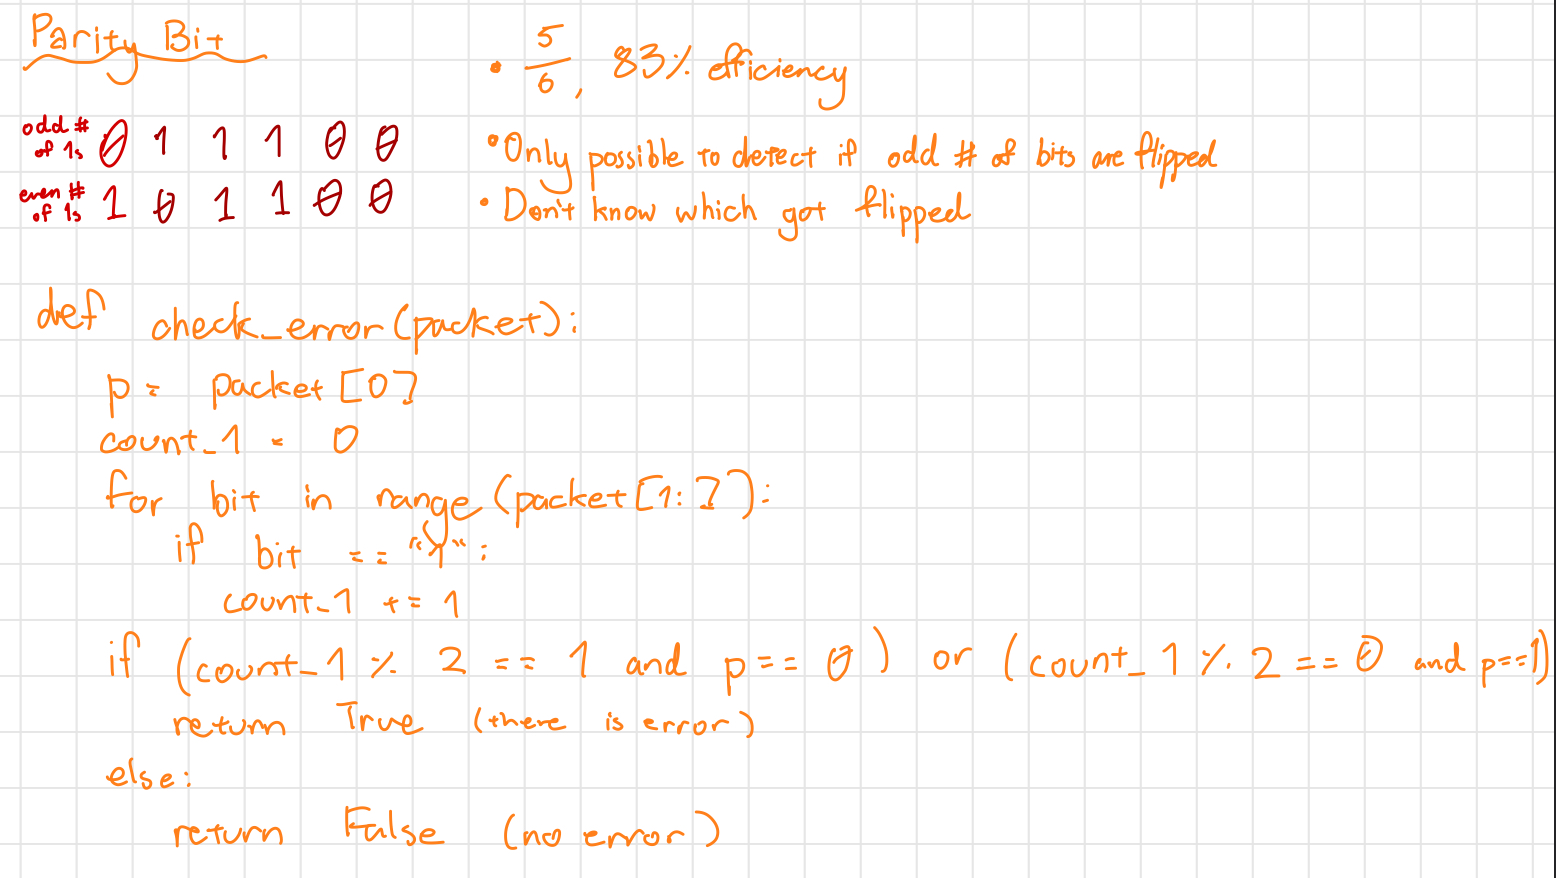 Parity Bit
odd #
of 1s 0 1 1 1 0 0
even #
of 1s 1 0 1 1 0 0
• 5/6, 83% efficiency
• Only possible to detect if odd # of bits are flipped
• Don't know which got flipped
def check_error(packet):
p = packet[0]
count_1 = 0
for bit in range(packet[1:]):
if bit == "1":
count_1 += 1
if (count_1 % 2 == 1 and p == 0) or (count_1 % 2 == 0 and p==1)
return True (there is error)
else:
return False (no error)